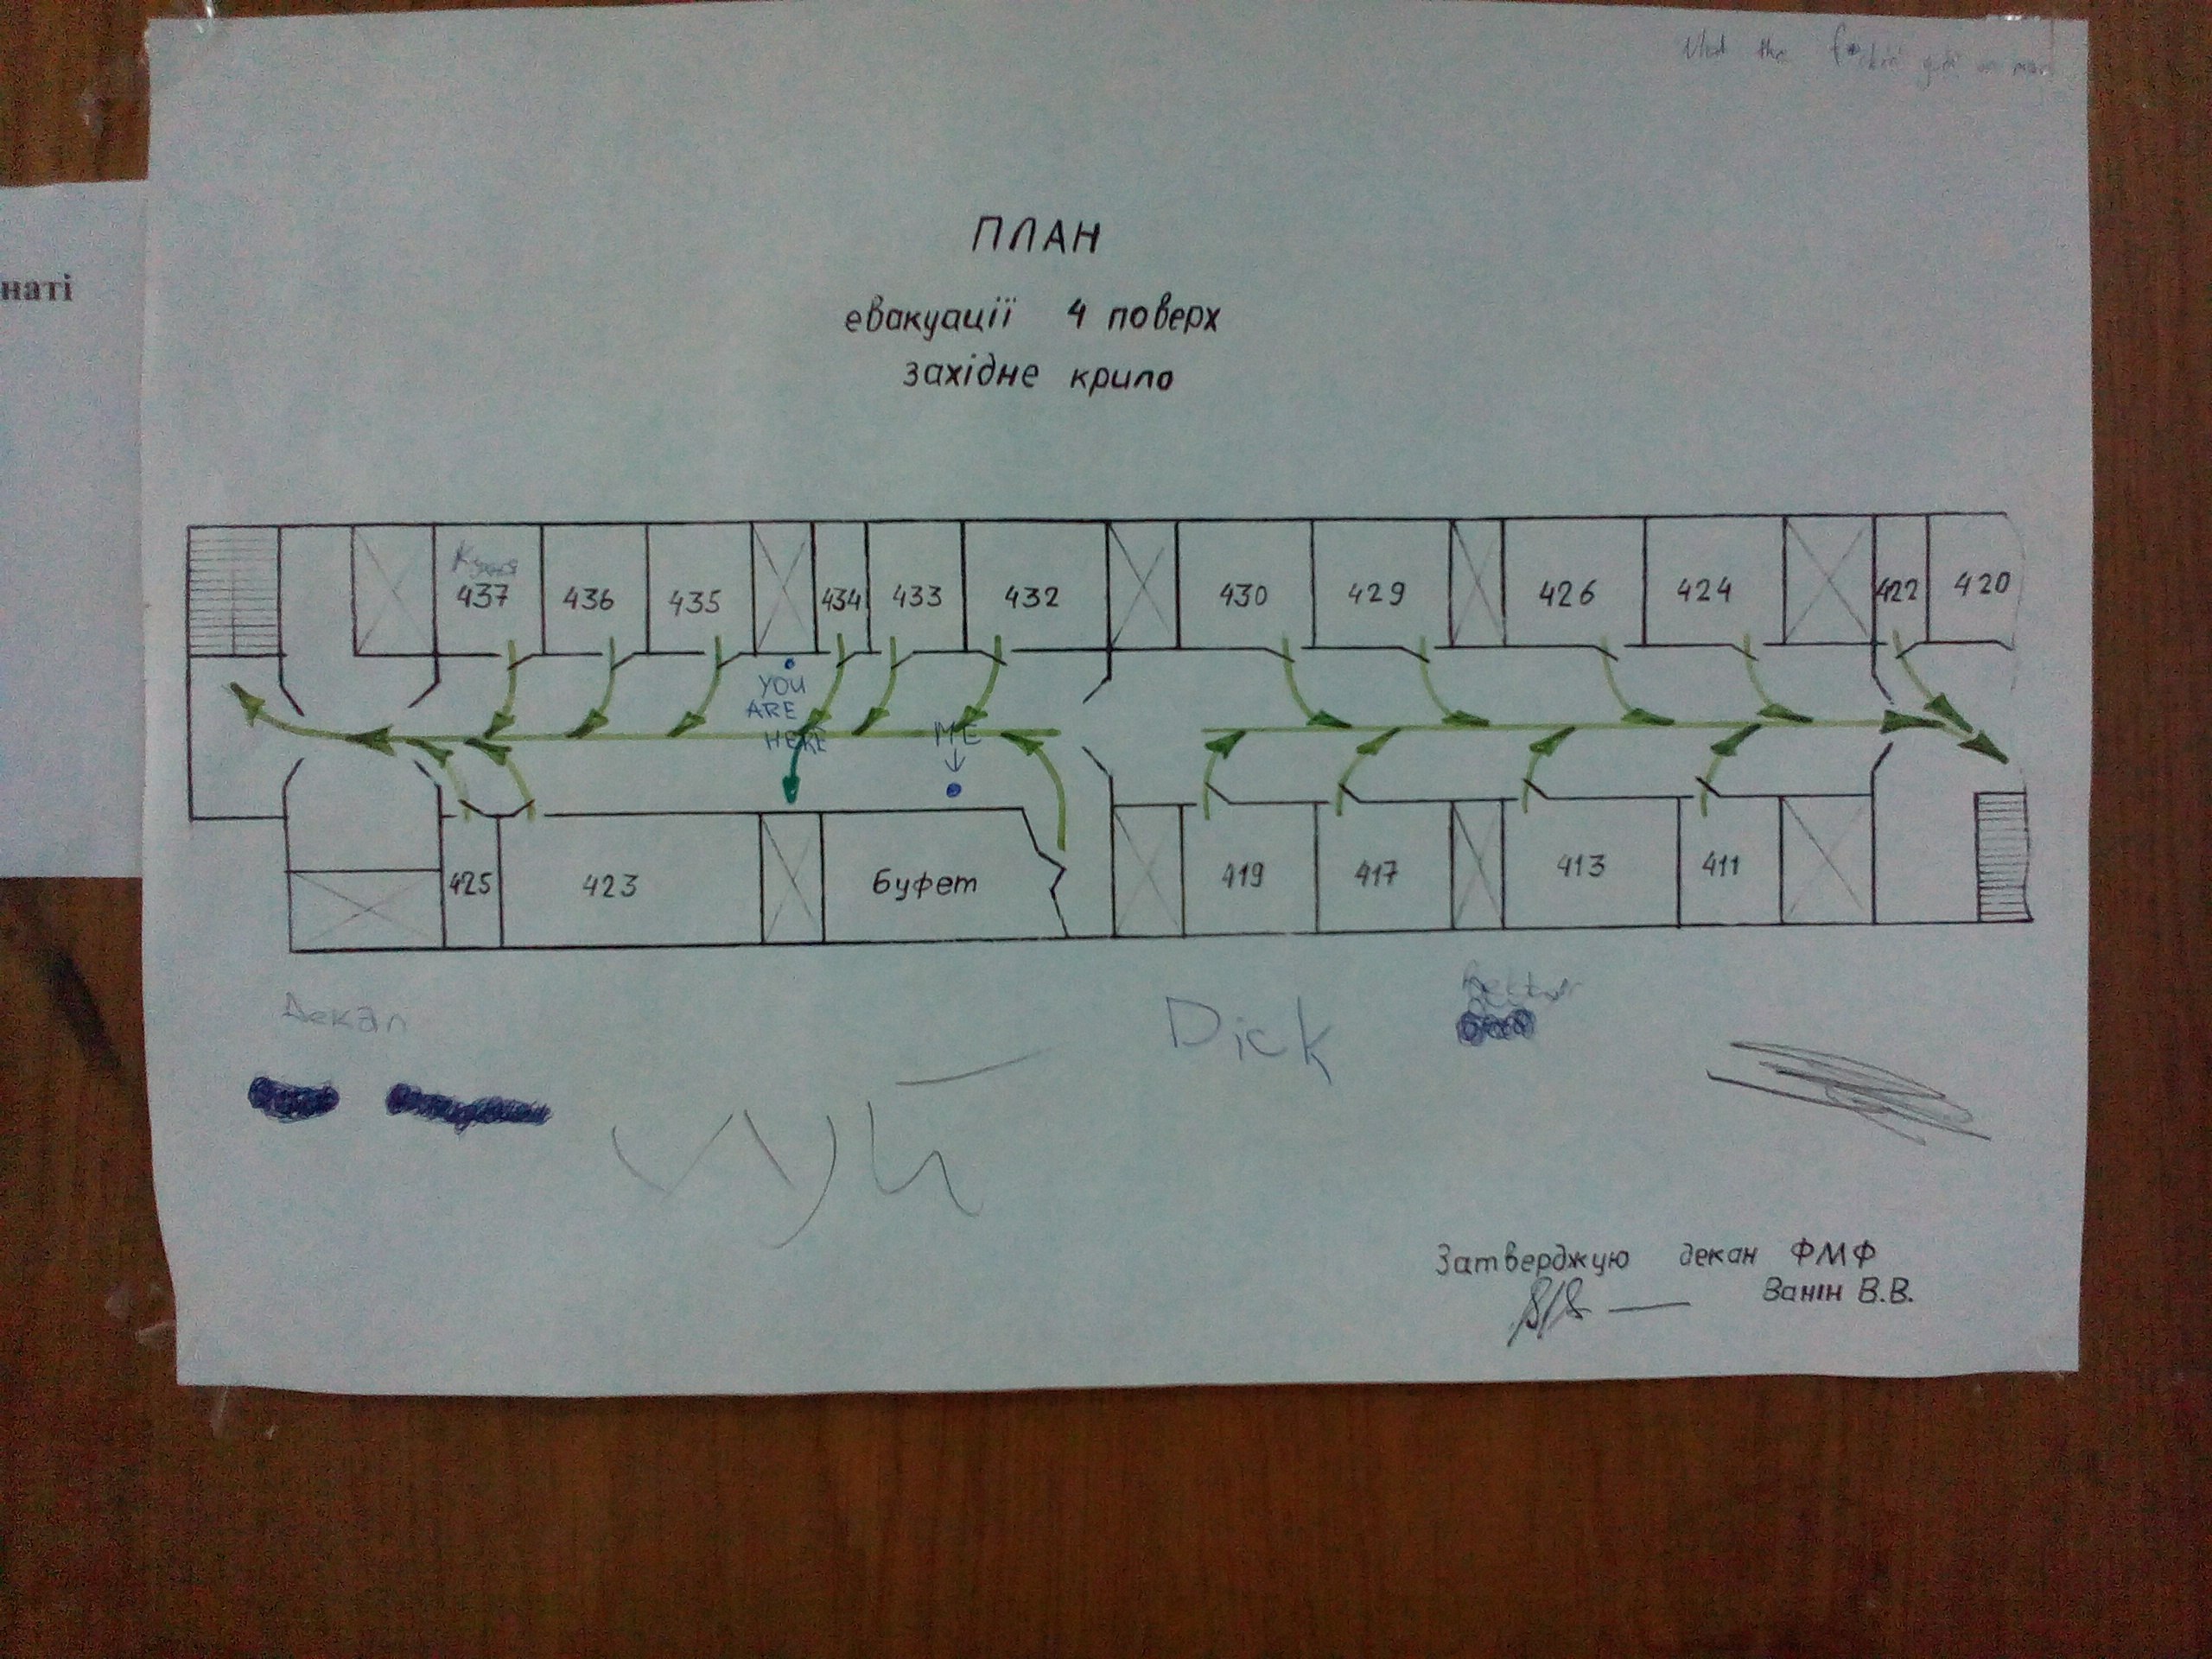 наті
ПЛАН
евакуації 4 поверх
західне крило
Кухня
437 436 435 434 433 432 430 429 426 424 422 420
YOU
ARE
HERE
ME
425 423 буфет 419 417 413 411
Декан
Dick
Затверджую декан ФМФ
Занін В.В.